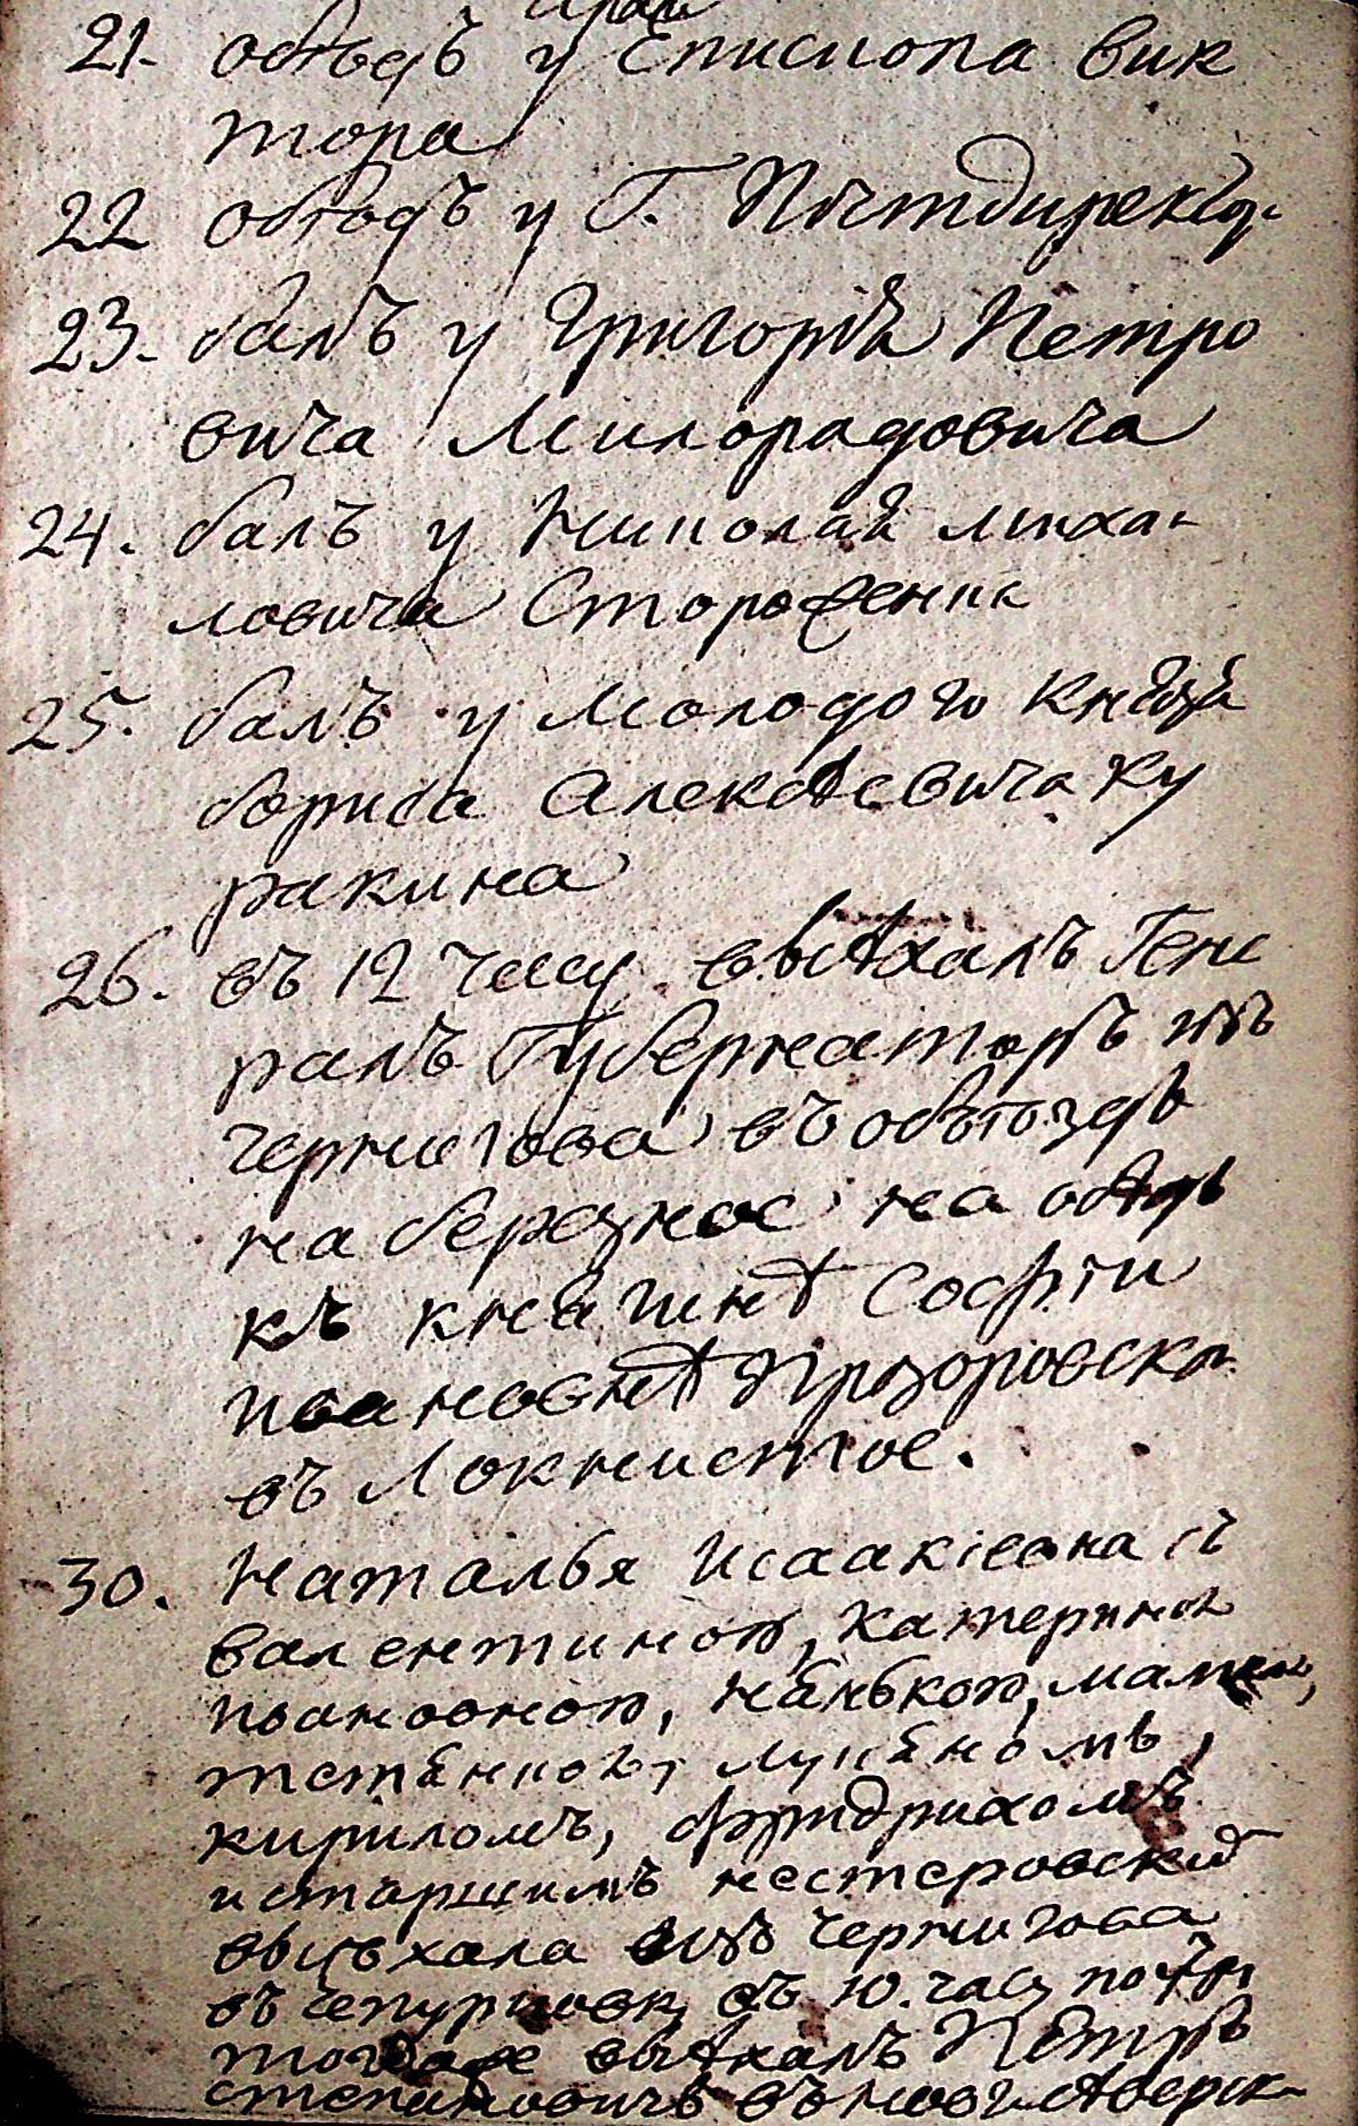 21. обѣдъ у Епископа Вик
тора
22 обѣдъ у Г. Почтдиректо
23. балъ у Григорія Петро
вича Милорадовича
24. балъ у Николая Миха
ловича Стороженка
25. балъ у Молодого Князя
бориса Алексѣевича Ку
ракина
26. въ 12 часу выѣхалъ Гене
ралъ Губернаторъ изъ
Чернигова въ объѣздъ
на березное на обѣдъ
къ княгинѣ Софіи
Ивановнѣ Прозоровско
въ Локнистое.
30. Наталья Исаакіевна съ
валентиной, Катериной
Ивановной, нянькой,
Лукяномъ,
кириломъ, фридрихомъ
и старшимъ нестеровски
выѣхала изъ Чернигова
въ чепурковку въ 10. часу по
тогдаже выѣхалъ Петръ
степановичъ въ